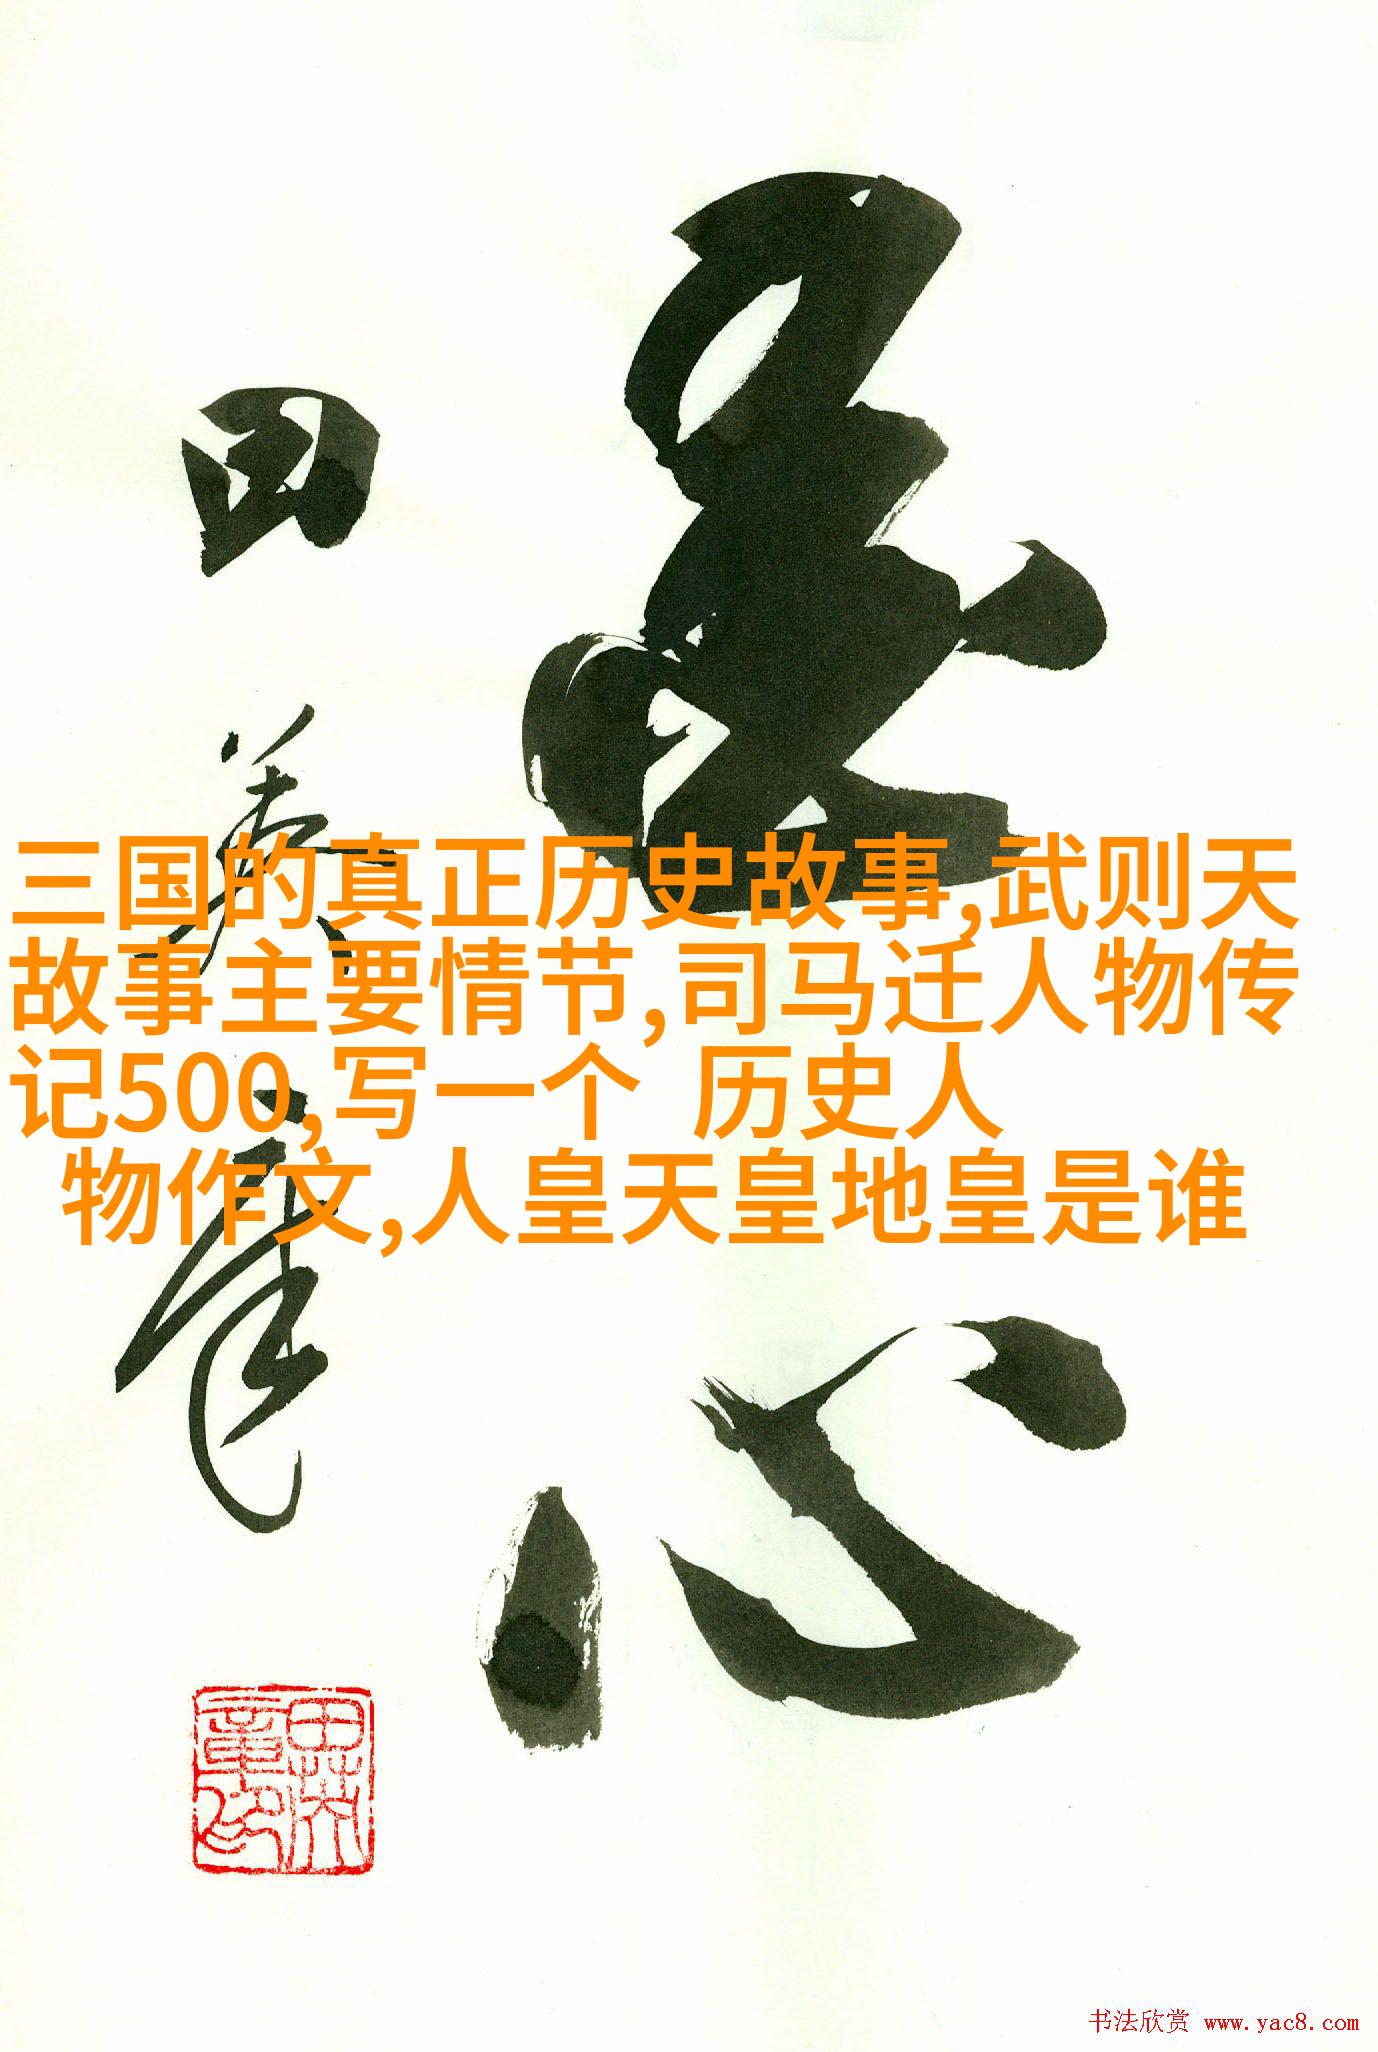 三国的真正历史故事,武则天
故事主要情节,司马迁人物传
记500,写一个 历史人
物作文,人皇天皇地皇是谁
心
田
英
章
田英
章印
书法欣赏 www.yac8.com